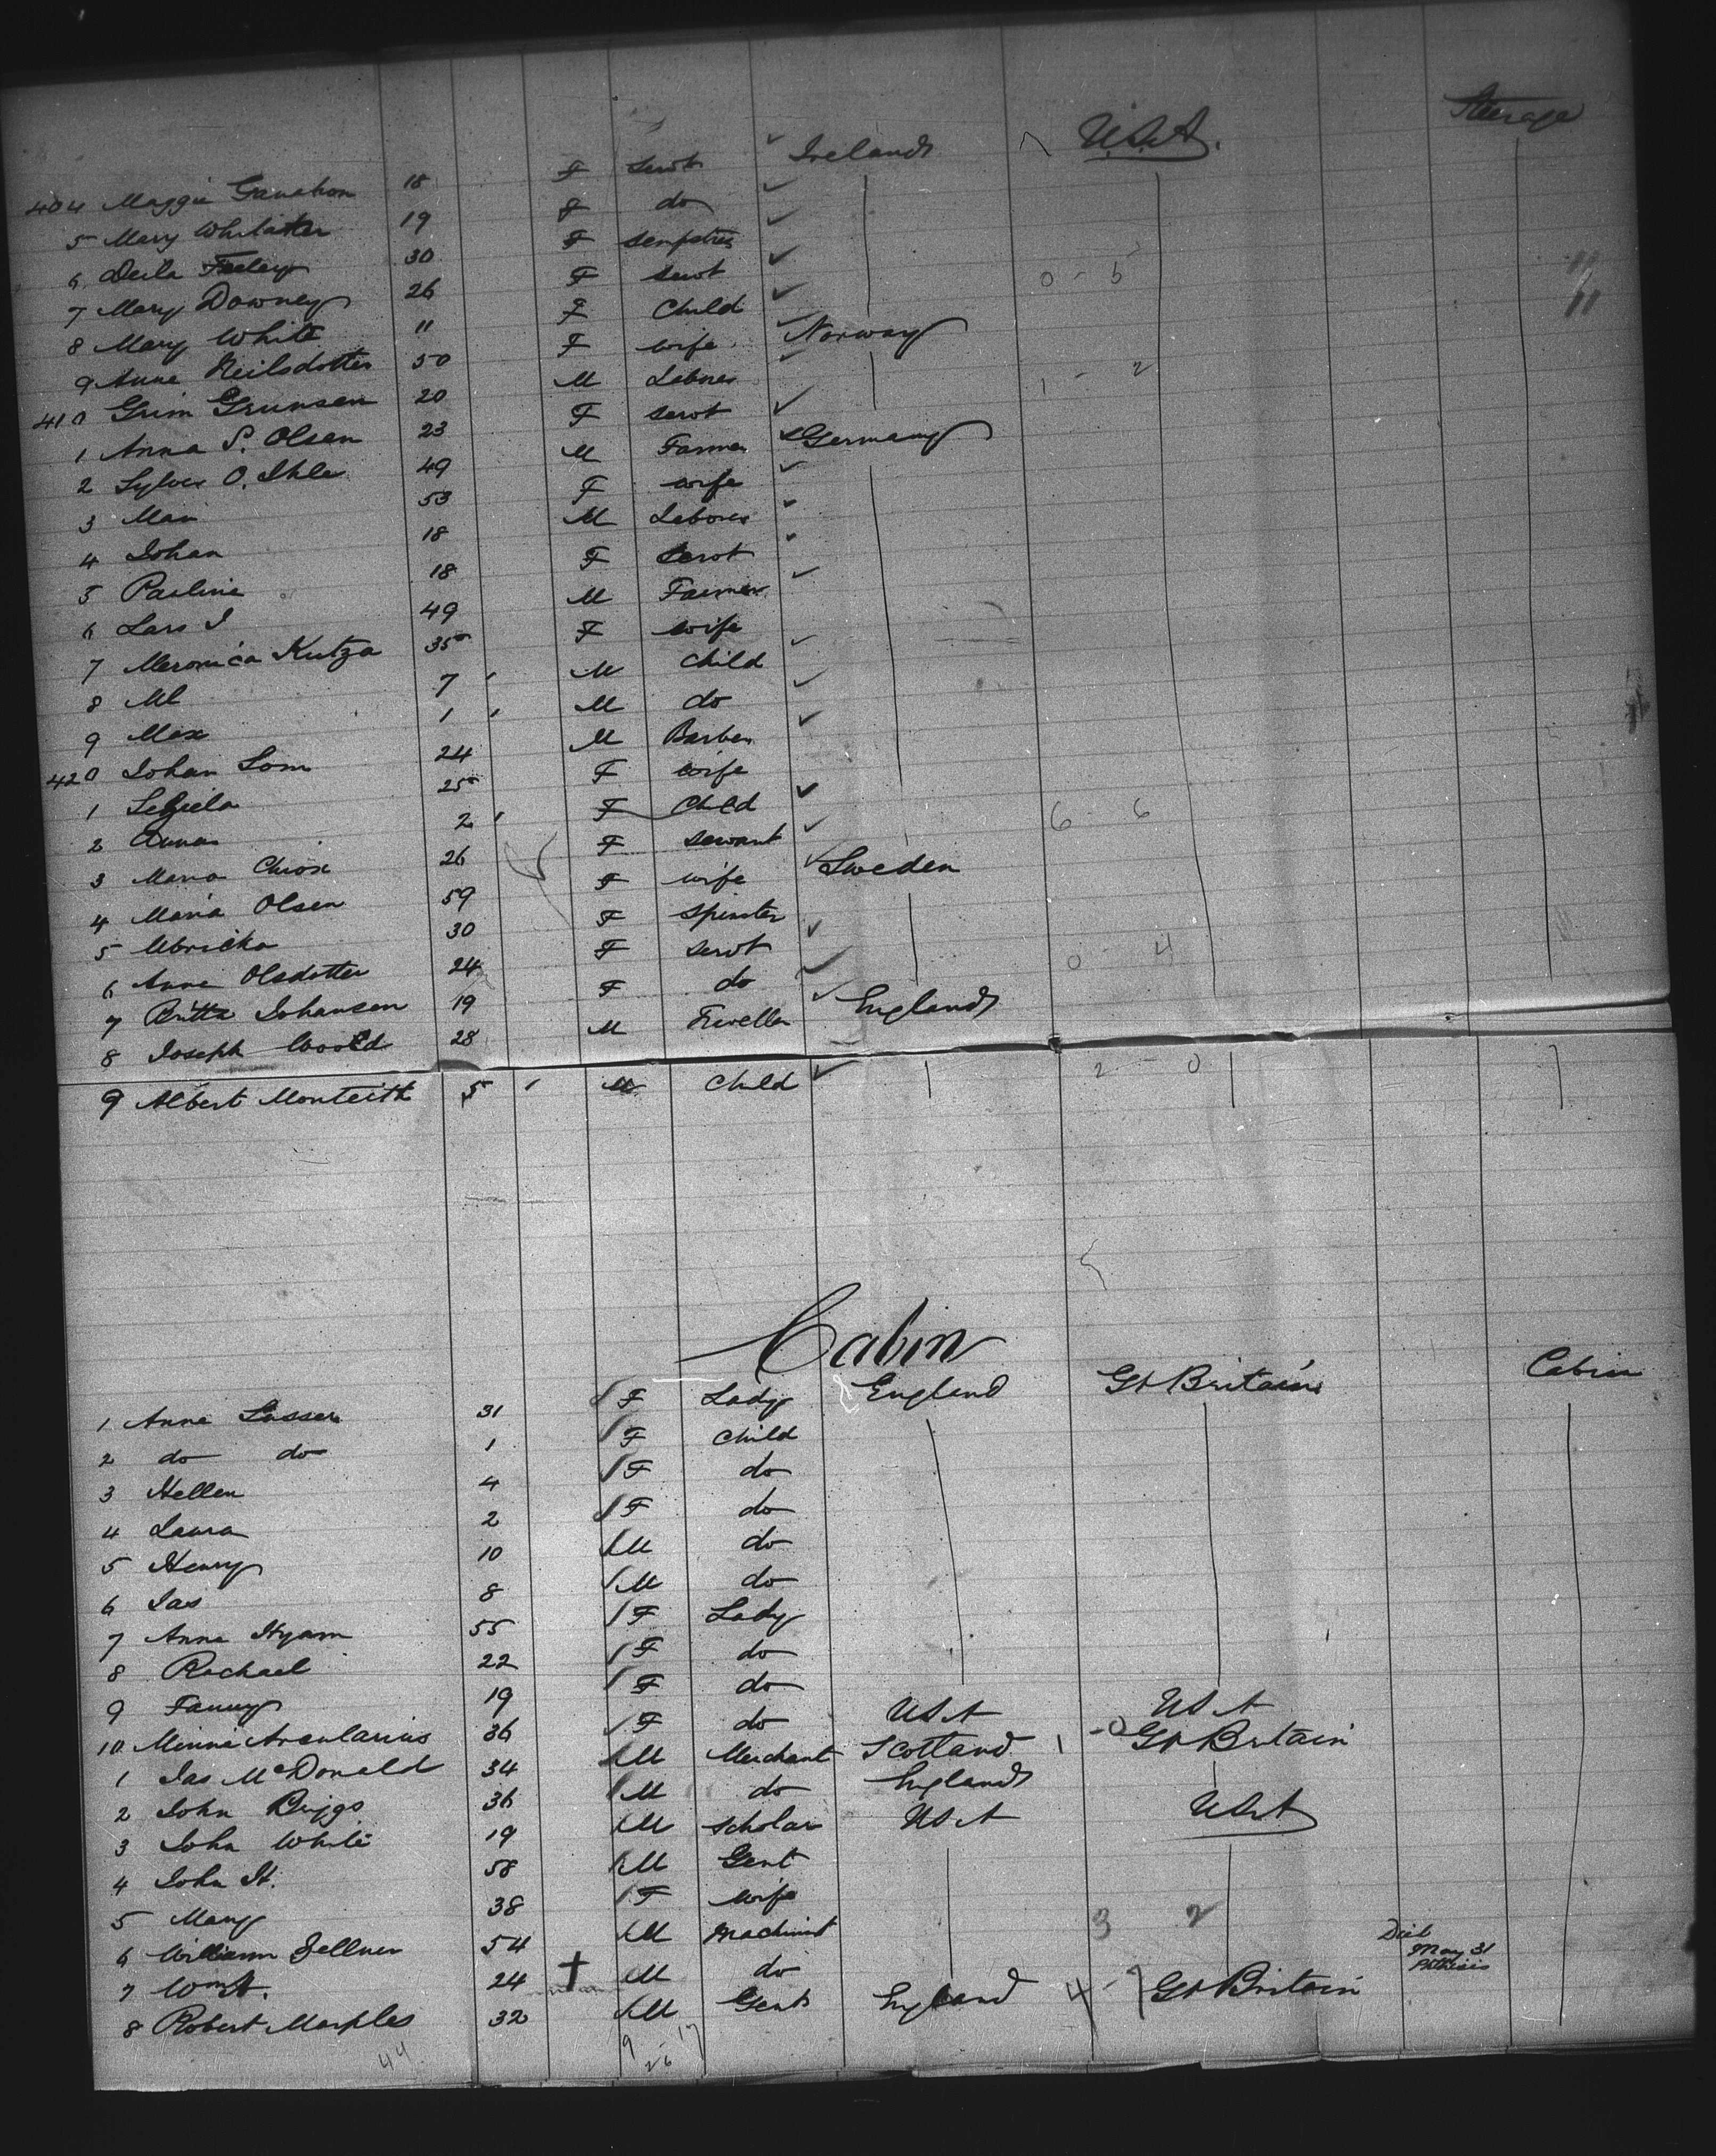 404 Maggie Ganahon 18 F Servt Ireland U.S.A. Steerage
5 Mary Whitaker 19 F do
6 Delia Feeley 30 F Sempstres
7 Mary Downey 26 F Servt 0 - 5
8 Mary White 11 F Child
9 Anne Neilsdotter 50 F wife Norway
410 Grim Grunsen 20 M Laborer 1 - 2
1 Anna S. Olsen 23 F Servt
2 Sylves O. Ihle 49 M Farmer Germany
3 Mari 53 F wife
4 Johan 18 M Laborer
5 Pauline 18 F Servt
6 Lars J 49 M Farmer
7 Meronica Kutza 35 F wife
8 Ml 7 M Child
9 Max 1 M do
420 Johan Som 24 M Barber
1 25 F wife
2 Anna 2 F Child
3 Maria 26 F Servant 6 6
4 Maria Olsen 59 F wife Sweden
5 Ulricka 30 F Spinster
6 Anne Olsdotter 24 F Servt 0 4
7 Britta Johansen 19 F do
8 Joseph 28 M England
9 Albert Monteith 5 M Child 2 - 0
Cabin
1 Anne Lasser 31 F Lady England Gt Britain Cabin
2 do do 1 F Child
3 Hellen 4 F do
4 Laura 2 F do
5 Henry 10 M do
6 Jas 8 M do
7 Anna Hyam 55 F Lady
8 Rachael 22 F do
9 Fanny 19 F do
10 Minnie Arcularius 36 F do USA USA
1 Jas McDonald 34 M Merchant Scotland 1 - 0 Gt Britain
2 John Briggs 36 M do England
3 John White 19 M Scholar USA USA
4 John H. 58 M Gent
5 Mary 38 F wife
6 William Zellner 54 M Machinist 3 2
7 Wm H. 24 M do Died May 31 Phthisis
8 Robert Marples 32 M Gent England 4 - 7 Gt Britain
44 9 17
26